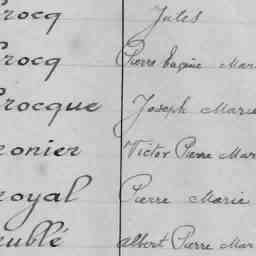 rocq Jules
rocq Pierre Eugène Mar
rocque Joseph Marie
ronier Victor Pierre Mar
royal Pierre Marie
ublé Albert Pierre Mar